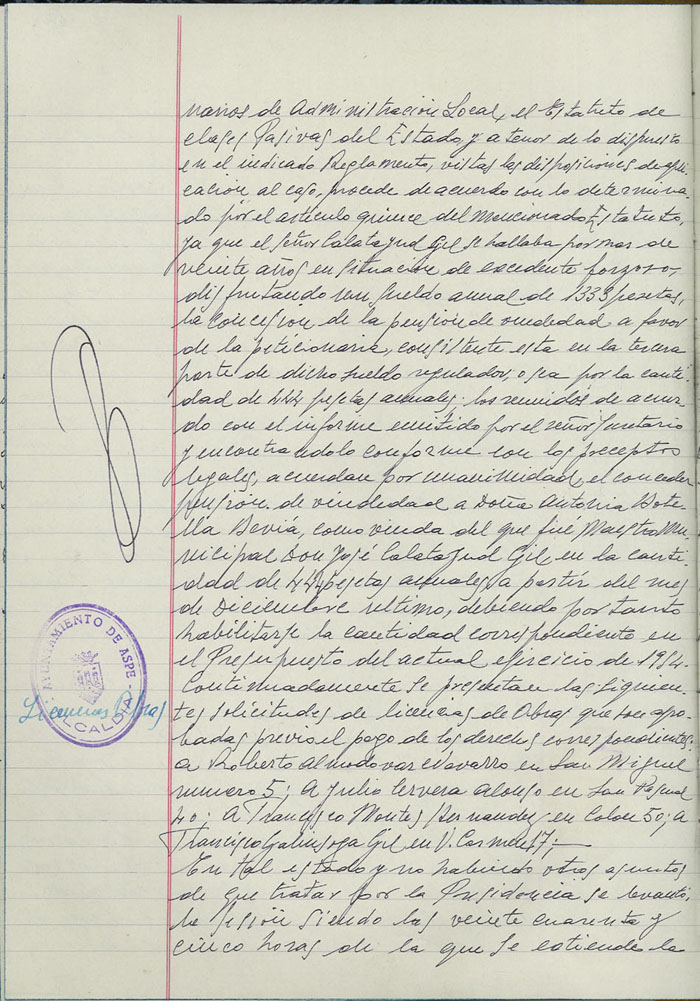 narios de Administración Local, el Estatuto de
clases Pasivas del Estado, y a tenor de lo dispuesto
en el indicado Reglamento, vistas las disposiciones de apli
cación al caso, procede de acuerdo con lo determina-
do por el artículo quince del mencionado Estatuto,
ya que el señor Calatayud Gil se hallaba por mas de
veinte años en situación de excedente forzoso,
disfrutando un sueldo anual de 1333 pesetas,
la concesión de la pensión de viudedad a favor
de la peticionaria, consistente esta en la tercera
parte de dicho sueldo regulador, o sea por la canti
dad de 444 pesetas anuales: los reunidos de acuer
do con el informe emitido por el señor Secretario
y encontrandolo conforme con los preceptos
legales, acuerdan por unanimidad, el conceder
pensión de viudedad a Doña Antonia Bote
lla Beviá, como viuda del que fue Maestro Mu
nicipal Don José Calatayud Gil en la canti
dad de 444 pesetas anuales, a partir del mes
de Diciembre ultimo, debiendo por tanto
habilitarse la cantidad correspondiente en
el Presupuesto del actual ejercicio de 1954.-
Continuadamente se presentan las siguien-
Licencias Obras
tes solicitudes de licencias de Obras que son apro
badas previo el pago de los derechos correspondientes:
a Roberto Almodovar Navarro en San Miguel
numero 5; A Julio Cervera Alonso en San Pascual
40; A Francisco Montes Hernandez en Colon 50; a
Francisco Gil en V. Carmen 17;
En tal estado y no habiendo otros asuntos
de que tratar por la Presidencia se levantó
la sesión siendo las veinte cuarenta y
cinco horas de la que se extiende la
AYUNTAMIENTO DE ASPE
ALCALDIA